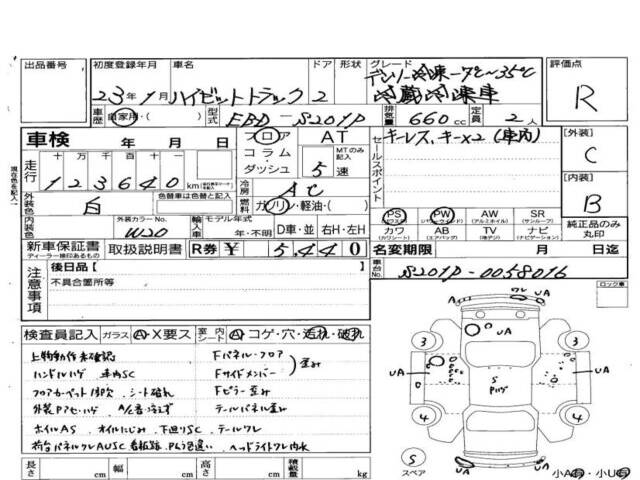 出品番号 初度登録年月 車名 ドア 形状 グレード 評価点
23年1月 ハイゼットトラック 2 デンソー冷凍-7℃~35℃ R
冷蔵冷凍車
車歴 自家用・( ) 型式 EBD-S201P 排気量 660cc 定員 2人
車検 年 月 日 フロア AT キーレス、キー×2(車内) 【外装】
コラム MTのみ記入 C
走行 十 万 千 百 十 ダッシュ 5速 セールスポイント
123640 km 冷房 AC 【内装】
外装色 白 色替車は色替と記入 燃料 ガソリン・軽油・( ) B
内装色 外装カラーNo. W20 輸入車 モデル年式 年・不明 D車・並 右H・左H
PS PW AW(アルミホイル) SR(サンルーフ)
カワ(カワシート) AB(エアバッグ) TV(地デジ) ナビ(ナビゲーション) 純正品のみ丸印
新車保証書 ディーラー検印あるもの 取扱説明書 R券 ¥ 5,440 名変期限 年 月 日迄
注意事項 後日品【 】 車台No. S201P-0058016
不具合箇所等
現在色を記入
ロック車
検査員記入 ガラス A・X要ス 室内 シート A・コゲ・穴・汚れ・破れ
上物動作未確認 Fパネル・フロア
ハンドルハゲ 車内SC Fサイドメンバー 歪み
シート破れ Fピラー歪み
テールパネル歪み
ホイルAS オイルにじみ 下廻りSC テールワレ
荷台パネルワレAUSC 看板跡 ヘッドライトワレ内水
長さ cm 幅 cm 高さ cm 積載量 kg
A ワレ UA
UA
3 3
UA S UA
4 4
S スペア
UA UA
小A有・小U有